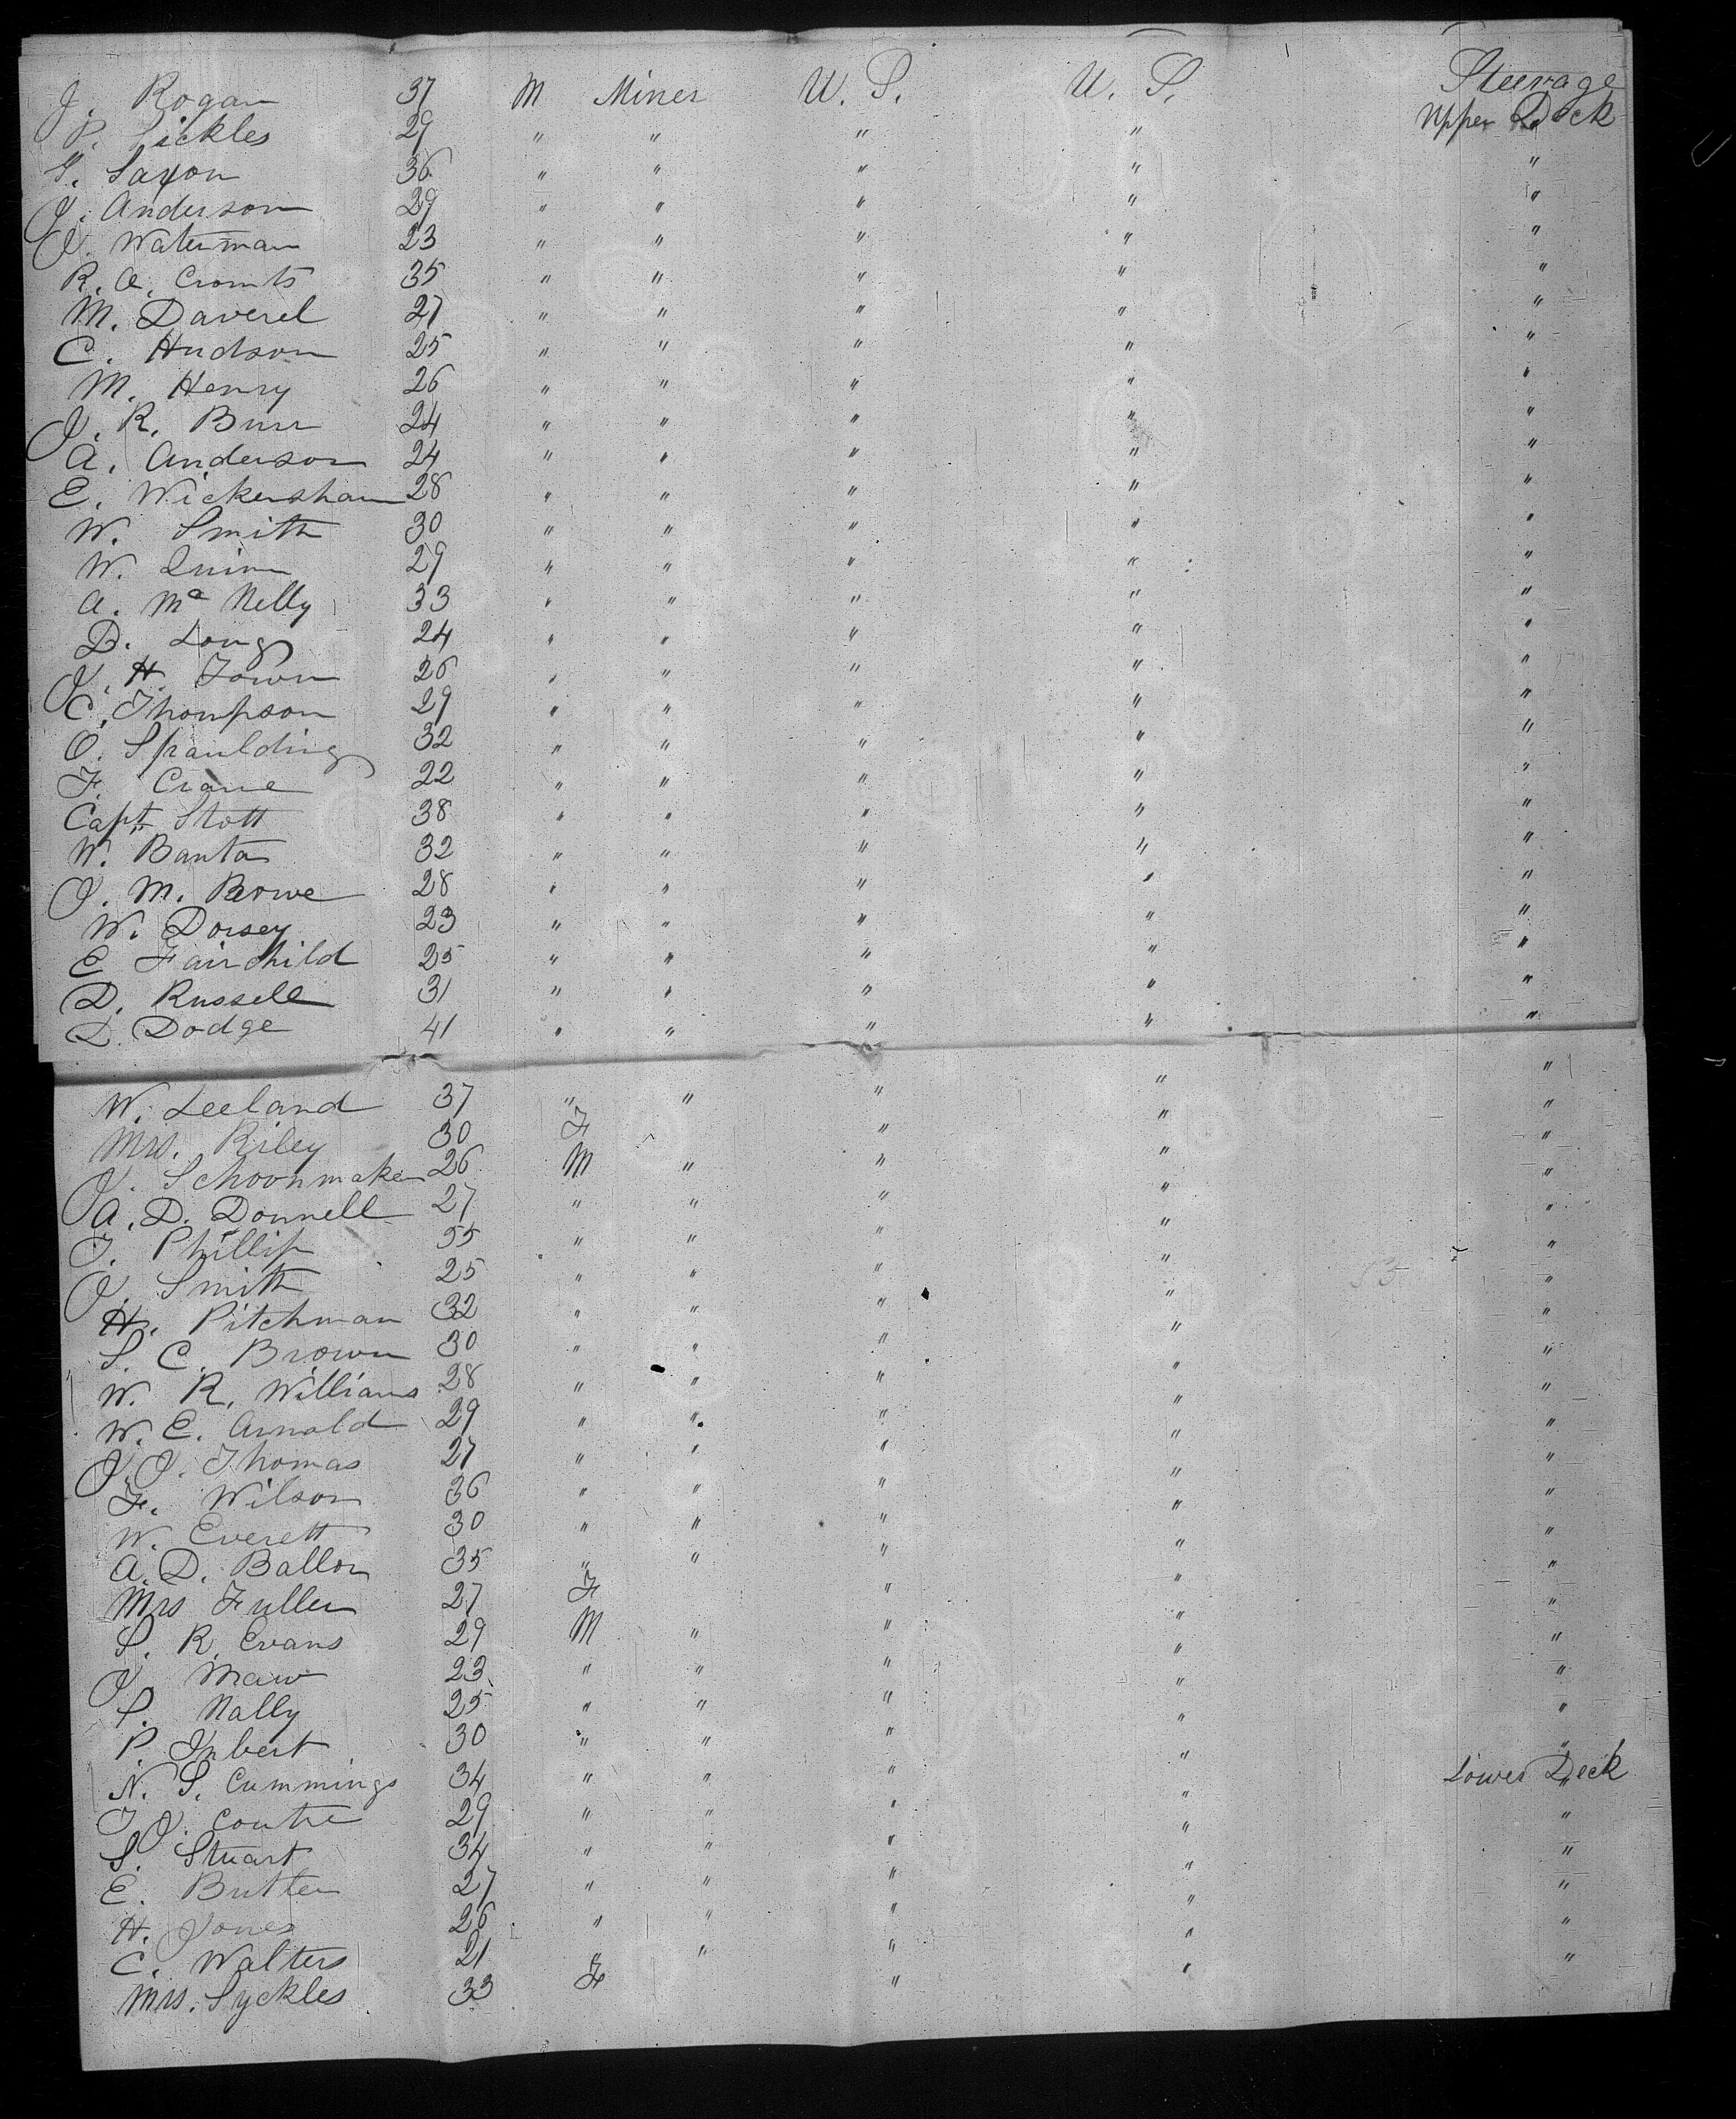 J. Rogan 37 M Miner U. S. U. S. Steerage
P. Sickles 29 " " " " Upper Deck
S. Saxon 36 " " " " "
J. Anderson 29 " " " " "
J. Waterman 23 " " " " "
R. A. Cromts 35 " " " " "
M. Daverel 27 " " " " "
C. Hudson 25 " " " " "
M. Henry 26 " " " " "
J. R. Burr 24 " " " " "
A. Anderson 24 " " " " "
E. Wickersham 28 " " " " "
W. Smith 30 " " " " "
W. Quinn 29 " " " " "
A. Mc Nelly 33 " " " " "
D. Long 24 " " " " "
J. H. Town 26 " " " " "
C. Thompson 29 " " " " "
O. Spaulding 32 " " " " "
F. Crane 22 " " " " "
Capt Stott 38 " " " " "
W. Banta 32 " " " " "
J. M. Rowe 28 " " " " "
W. Dorsey 23 " " " " "
E Fairchild 25 " " " " "
D. Russell 31 " " " " "
L. Dodge 41 " " " " "
W. Leeland 37 " " " " "
Mrs. Riley 30 F " " "
J. Schoonmaker 26 M " " " "
A. D. Donnell 27 " " " " "
T. Phillip 55 " " " " "
J. Smith 25 " " " " "
H. Pitchman 32 " " " " "
S. C. Brown 30 " " " " "
W. R. Williams 28 " " " " "
W. E. Arnold 29 " " " " "
J. J. Thomas 27 " " " " "
F. Wilson 36 " " " " "
W. Everett 30 " " " " "
A. D. Ballou 35 " " " " "
Mrs Fuller 27 F " " "
S. R. Evans 29 M " " " "
J. Maw 23 " " " " "
P. Nally 25 " " " " "
P. Inbert 30 " " " " "
N. S. Cummings 34 " " " " Lower Deck
T. J. Coutre 29 " " " " "
S. Stuart 34 " " " " "
E. Butler 27 " " " " "
H. Jones 26 " " " " "
C. Walters 21 " " " " "
Mrs. Syckles 33 F " "